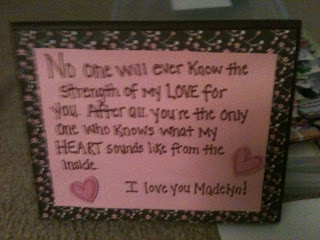 No one will ever know the
strength of my LOVE for
you. After all, you're the only
one who knows what my
HEART sounds like from the
inside.
I love you Madelyn!